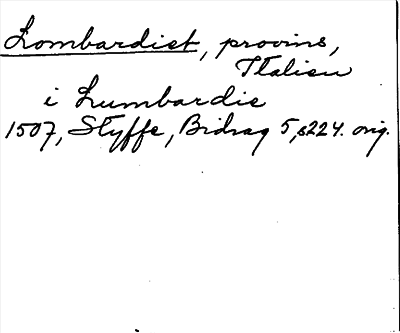 Lombardiet, provins,
Italien
i Lumbardie
1507, Styffe, Bidrag 5, s 224. orig.